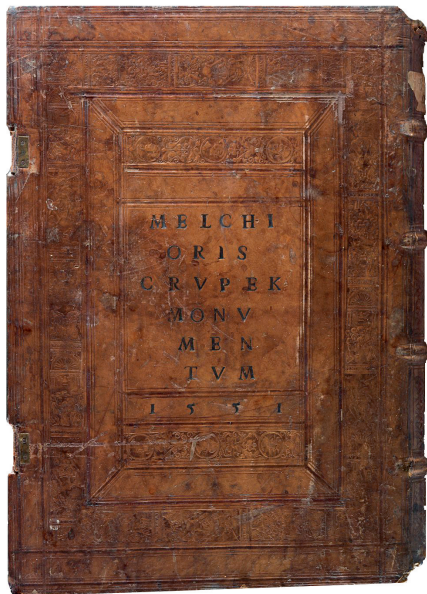 MELCHI
ORIS
CRVPEK
MONV
MEN
TVM
1551